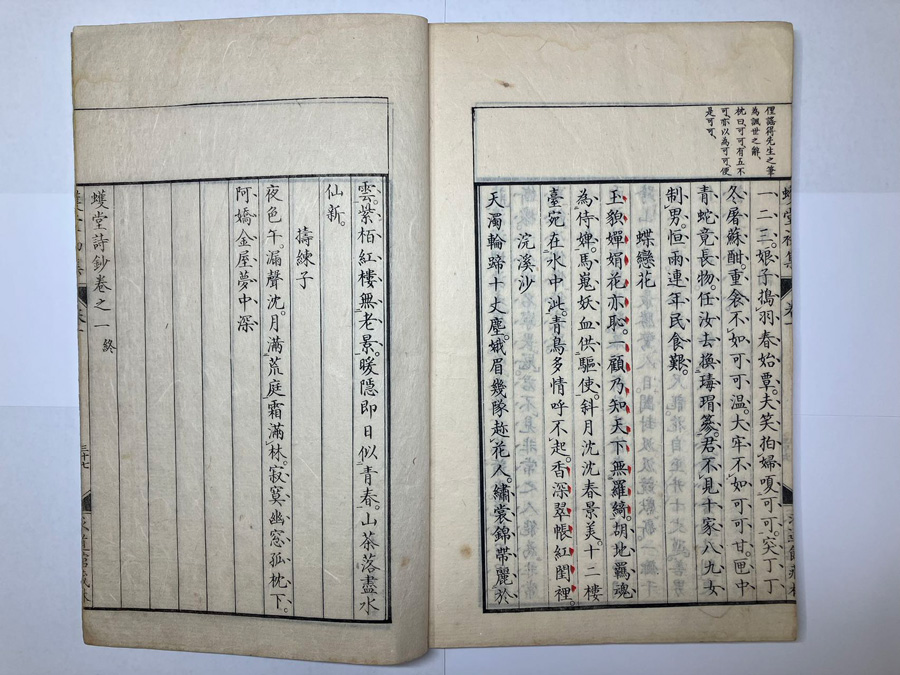 俚謡得先生之筆
為諷世之解、
枕曰、可可有五不
可、亦以為可可、便
是可可、
一、二、三。娘子搗羽春始覃。夫笑拍婦嗄可可。突丁丁
冬屠蘇酣。重衾不如可可溫。大牢不如可可甘。匣中
青蛇竟長物。任汝去換瑇瑁篸。君不見十家八九女
制男。恒雨連年民食艱。
蝶戀花
玉貌嬋娟花亦恥。一顧乃知天下無羅綺。胡地羈魂
為侍婢。馬嵬妖血供驅使。斜月沈沈春景美。十二樓
臺宛在水中沚。青鳥多情呼不起。香深翠帳紅閨裡。
浣溪沙
天濁輪蹄十丈塵。娥眉幾隊趂花人。繡裳錦帶麗於
雲。紫栢紅樓無老景。暖隱即日似青春。山茶落盡水
仙新。
擣練子
夜色午。漏聲沈。月滿荒庭霜滿林。寂寞幽窓孤枕下。
阿嬌金屋夢中深
蠖堂詩鈔卷之一 終
三十七